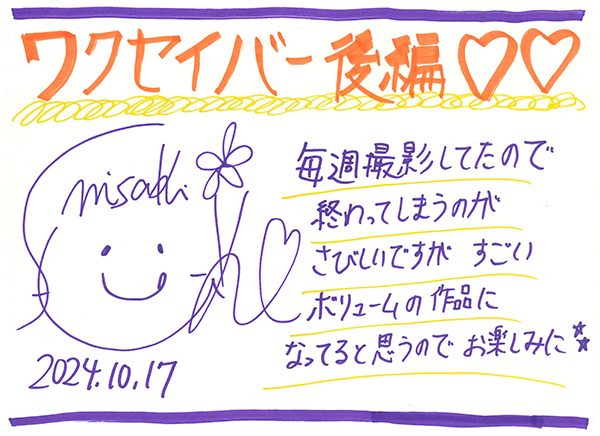 ワクセイバー後編♡♡
misaki
毎週撮影してたので
終わってしまうのが
さびしいですが すごい
ボリュームの作品に
なってると思うので お楽しみに☆☆
2024.10.17